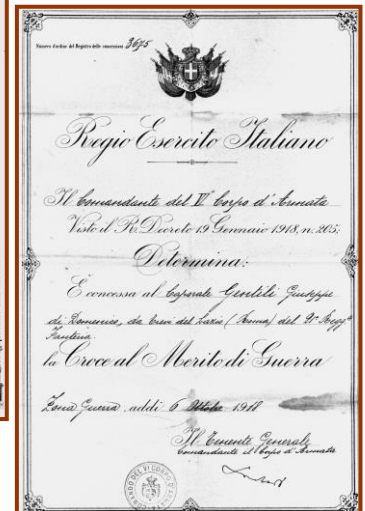 Numero d'ordine del Registro delle concessioni 3675
Regio Esercito Italiano
Il Comandante del VI° Corpo d'Armata
Visto il R. Decreto 19 Gennaio 1918, n. 205;
Determina:
È concessa al Caporale Gentili Giuseppe
di Domenico, da Trevi del Lazio (Roma) del Regg.to
Fanteria
la Croce al Merito di Guerra
Zona Guerra addì 6 Ottobre 1918
Il Tenente Generale
Comandante il Corpo d'Armata
COMANDO DEL VI CORPO D'ARMATA